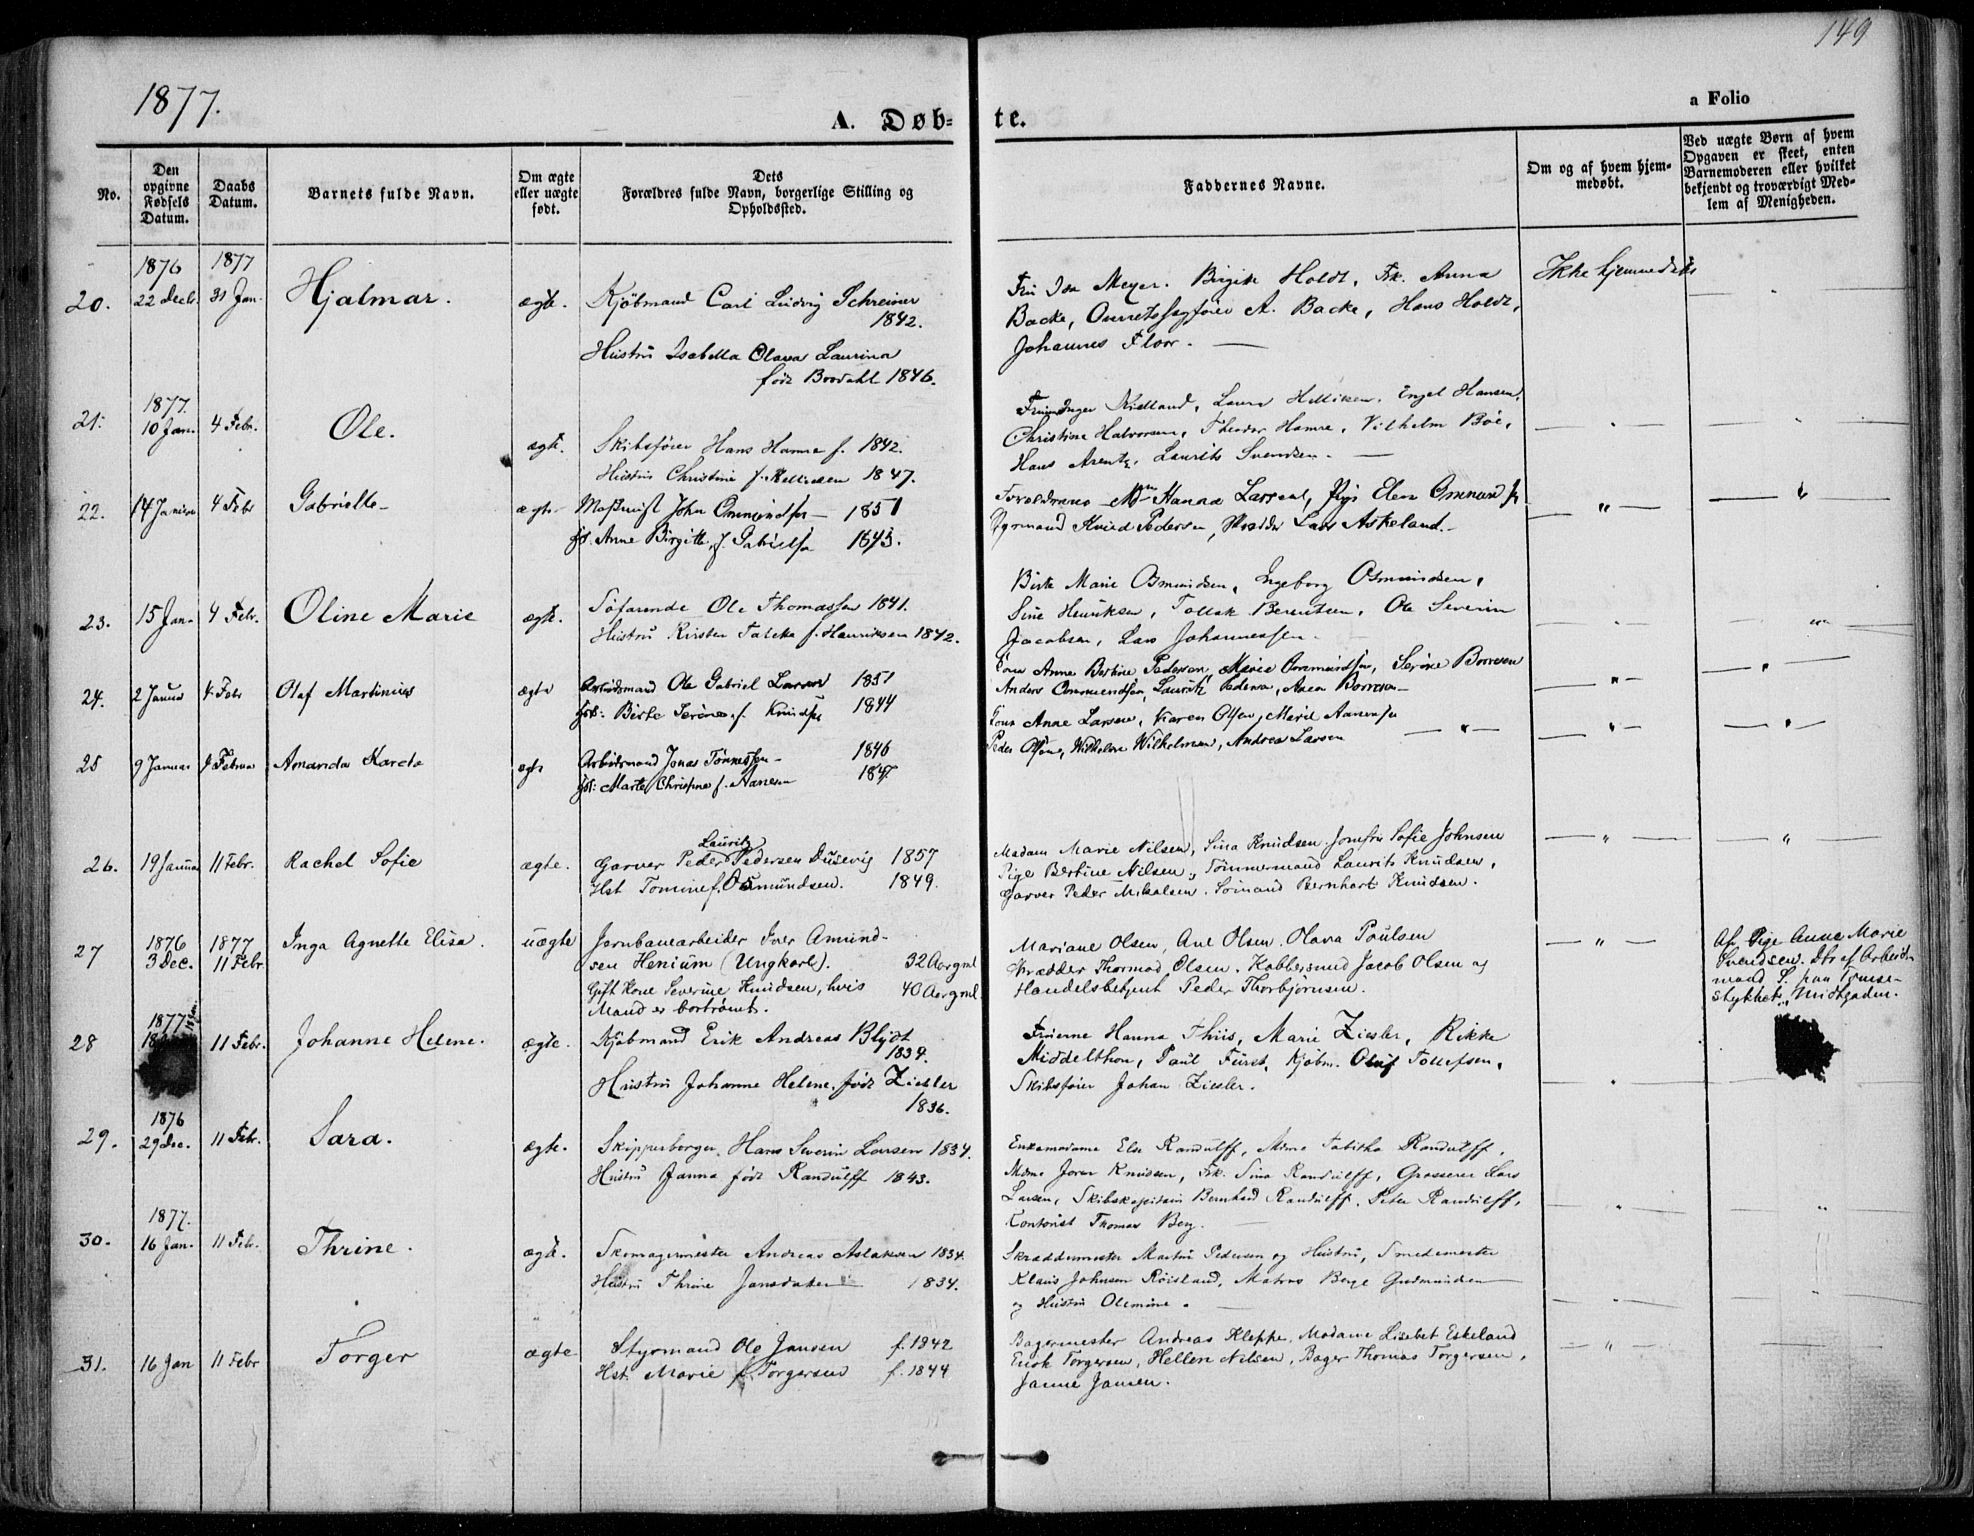 149
1877.
a Folio
A. Døb-
te.
No.
Den opgivne Fødsels Datum.
Daabs Datum.
Barnets fulde Navn.
Om ægte eller uægte født.
Dets Forældres fulde Navn, borgerlige Stilling og Opholdssted.
Faddernes Navne.
Om og af hvem hjemmedøbt.
Ved uægte Børn af hvem Opgaven er skeet, enten Barnemoderen eller hvilket bekjendt og troværdigt Medlem af Menigheden.
1876 1877
20. 22 Decb. 31 Jan. Hjalmar. ægte. Kjøbmand Carl Ludvig Schreiner
1842.
Hustru Isabella Olava Laurina
født Brodahl 1846.
Fru Isa Meyer. Birgitte Holdt, Frk. Anna
Backe, Overretssagfører A. Backe, Hans Holdt,
Johannes Floor. —
Ikke hjemmedøbt
1877.
21. 10 Jan. 4 Febr. Ole. ægte. Skibsfører Hans Hamre f. 1842.
Hustru Christine f. Melliksen 1847.
Inger Kielland, Laura Helliksen, Engel Hansen,
Christine Halvorsen, Theodor Hamre, Vilhelm Böe,
Hans Arentz, Laurits Svendsen. —
22. 14 Januar 4 Febr Gabrielle ægte Maskinist John Ommundsen — 1851
Anne Birgitte f. Gabrielsen 1843.
Forældrene — Hanna Larsen, Pige Elen Ommundsen
Styrmand Knud Pedersen, Skrædder Lars Askeland. —
23. 15 Jan. 4 Febr. Oline Marie ægte. Søfarende Ole Thomassen 1841.
Hustru Kirsten Taleka f. Henriksen 1842.
Birte Marie Osmundsen, Ingeborg Osmundsen,
Sine Henriksen, Tollak Berentsen, Ole Severin
Jacobsen, Lars Johannessen.
24. 2 Januar 4 Febr Olaf Martinius ægte Arbeidsmand Ole Gabriel Larsen 1851
Birte Serine f. Knudsen 1844
Kone Anne Bertine Pedersen, Marie Ommundsen, Serine Børresen
Anders Ommundsen, Lauritz Pedersen, Børresen —
25 9 Januar 4 Februar Amanda ægte Arbeidsmand Jonas Tønnessen — 1846
Marte Christine f. Aanesen 1847.
Kone Anne Larsen, Karen Olsen, Marie Aanensen
Peder Olsen, Wilhelm Wilhelmsen, Andreas Larsen
26. 19 Januar 11 Febr. Rachel Sofie ægte. Garver Peder Lauritz Pedersen Dusevig 1857
Hst Tomine f. Osmundsen. 1849.
Madam Marie Nilsen, Sina Knudsen, Jomfru Sofie Johnsen
Pige Bertine Nilsen, Tømmermand Laurits Knudsen,
Garver Peder Mikalsen. Sømand Bernhart Knudsen.
27 1876 3 Dec. 1877 11 Febr. Inga Agnette Elisa. uægte Jernbanearbeider Iver Amund-
sen Henium (Ungkarl). 32 Aar gml
Gift Kone Severine Knudsen, hvis 40 Aar gml.
Mand er bortrømt.
Mariane Olsen, Ane Olsen. Olava Poulsen
Skrædder Thormod Olsen. Kobbersmed Jacob Olsen og
Handelsbetjent Peder Thorbjørnsen.
Af Pige Anne Marie
Svendsen. Dtr af Arbeids-
mand S. paa Tønse-
stykket, Midtgaden.
28 1877 11 Febr. Johanne Helene. ægte. Kjøbmand Erik Andreas Blydt
1839.
Hustru Johanne Helene, født Ziesler
1836.
Fruerne Hanna Thiis, Marie Ziesler, Rikke
Middelthon, Paul Fürst, Kjøbm. Oluf Tollefsen,
Skibsfører Johan Ziesler.
1876
29. 29 Dec. 11 Febr. Sara. ægte. Skipperborger Hans Severin Larsen 1834.
Hustru Janna født Randulff 1843.
Enkemadame Else Randulff, Mdme Tabitha Randulff,
Mdme Joren Knudsen, Frk. Sina Randulff, Grosserer Lars
Larsen, Skibskapitain Bernhard Randulff, Peter Randulff,
Contorist Thomas Berg. —
1877.
30. 16 Jan. 11 Febr. Thrine. ægte. Skomagermester Andreas Aslaksen 1834.
Hustru Thrine Jansdatter 1834.
Skræddermester Martin Pedersen og Hustru, Smedemester
Klaus Johnsen Röisland, Matros Berge Gudmundsen
og Hustru Olemine.
31. 16 Jan 11 Febr Torger ægte Styrmand Ole Jansen f. 1842
Hst. Marie f. Torgersen f. 1844
Bagermester Andreas Kleppe, Madame Lisebet Eskeland
Eriok Torgersen, Hellene Nilsen, Bager Thomas Torgersen,
Janne Jansen.